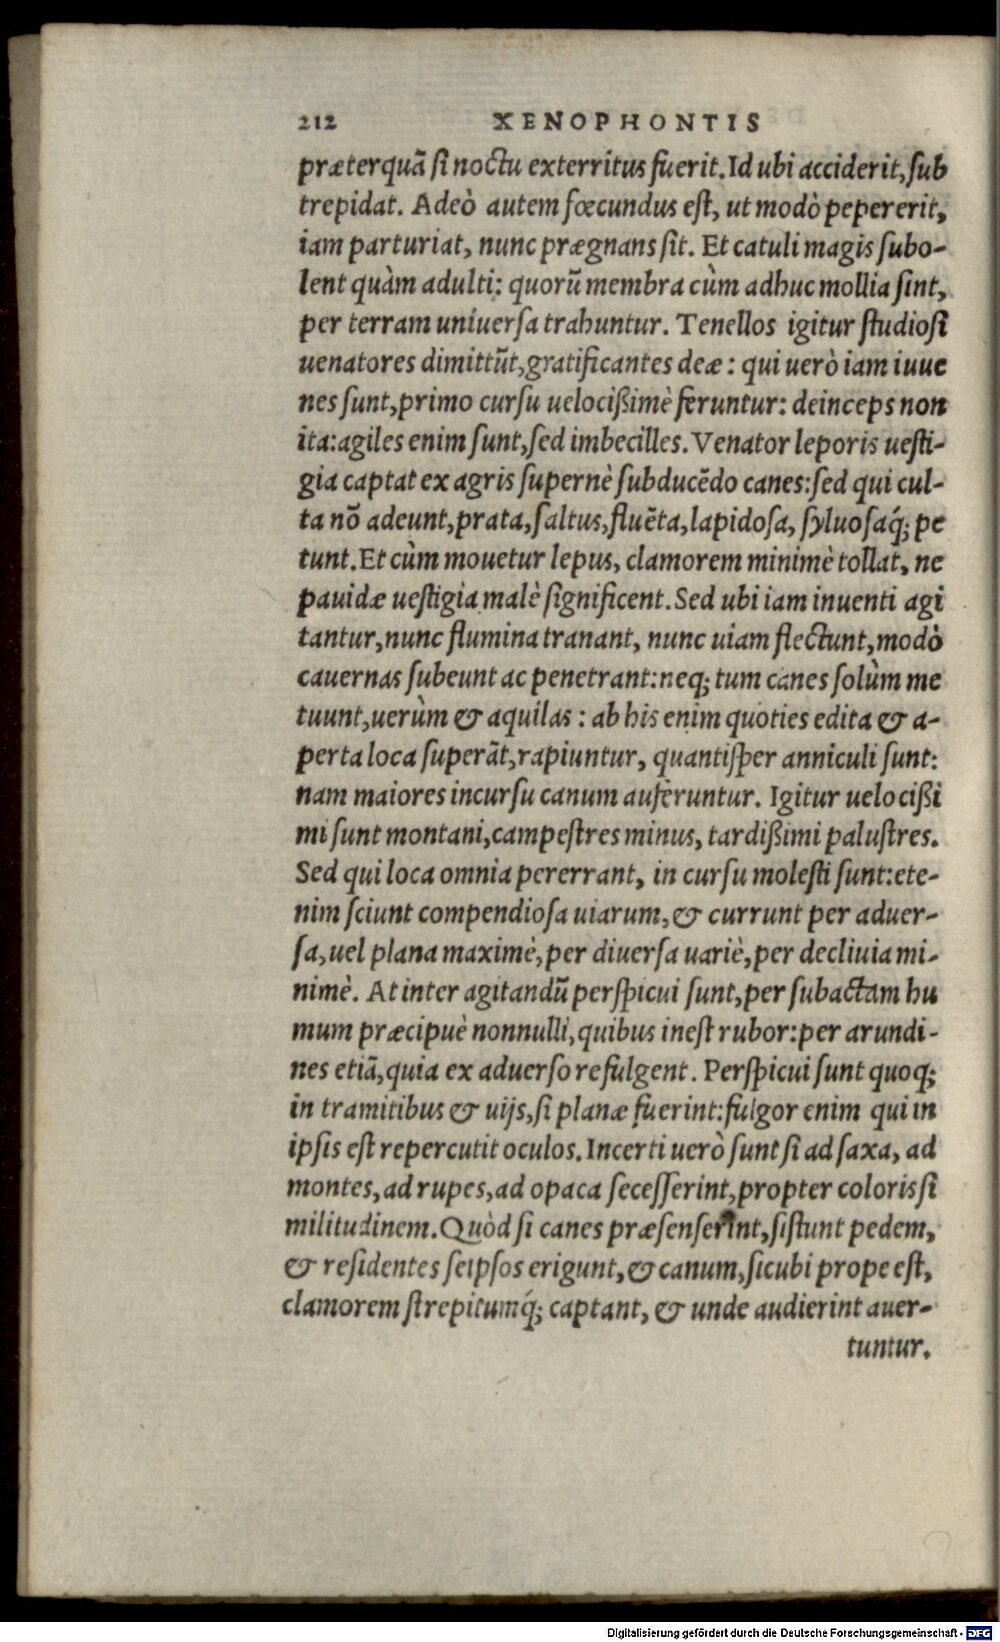 212 XENOPHONTIS
præterquã ſi noctu exterritus fuerit. Id ubi acciderit, ſub
trepidat. Adeò autem fœcundus eſt, ut modò pepererit,
iam parturiat, nunc prægnans ſit. Et catuli magis ſubo-
lent quàm adulti: quorũ membra cùm adhuc mollia ſint,
per terram uniuerſa trahuntur. Tenellos igitur ſtudioſi
uenatores dimittũt, gratificantes deæ: qui uerò iam iuue
nes ſunt, primo curſu uelocißimè feruntur: deinceps non
ita: agiles enim ſunt, ſed imbecilles. Venator leporis ueſti-
gia captat ex agris ſupernè ſubducẽdo canes: ſed qui cul-
ta nõ adeunt, prata, ſaltus, fluẽta, lapidoſa, ſyluoſaq́; pe
tunt. Et cùm mouetur lepus, clamorem minimè tollat, ne
pauidæ ueſtigia malè ſignificent. Sed ubi iam inuenti agi
tantur, nunc flumina tranant, nunc uiam flectunt, modò
cauernas ſubeunt ac penetrant: neq; tum canes ſolùm me
tuunt, uerùm & aquilas: ab his enim quoties edita & a-
perta loca ſuperãt, rapiuntur, quantiſper anniculi ſunt:
nam maiores incurſu canum auferuntur. Igitur uelocißi
mi ſunt montani, campeſtres minus, tardißimi paluſtres.
Sed qui loca omnia pererrant, in curſu moleſti ſunt: ete-
nim ſciunt compendioſa uiarum, & currunt per aduer-
ſa, uel plana maximè, per diuerſa uariè, per decliuia mi-
nimè. At inter agitandũ perſpicui ſunt, per ſubactam hu
mum præcipuè nonnulli, quibus ineſt rubor: per arundi-
nes etiã, quia ex aduerſo refulgent. Perſpicui ſunt quoq;
in tramitibus & uijs, ſi planæ fuerint: fulgor enim qui in
ipſis eſt repercutit oculos. Incerti uerò ſunt ſi ad ſaxa, ad
montes, ad rupes, ad opaca ſeceſſerint, propter coloris ſi
militudinem. Quòd ſi canes præſenſerint, ſiſtunt pedem,
& reſidentes ſeipſos erigunt, & canum, ſicubi prope eſt,
clamorem ſtrepitumq́; captant, & unde audierint auer-
tuntur.
Digitalisierung gefördert durch die Deutsche Forschungsgemeinschaft - DFG